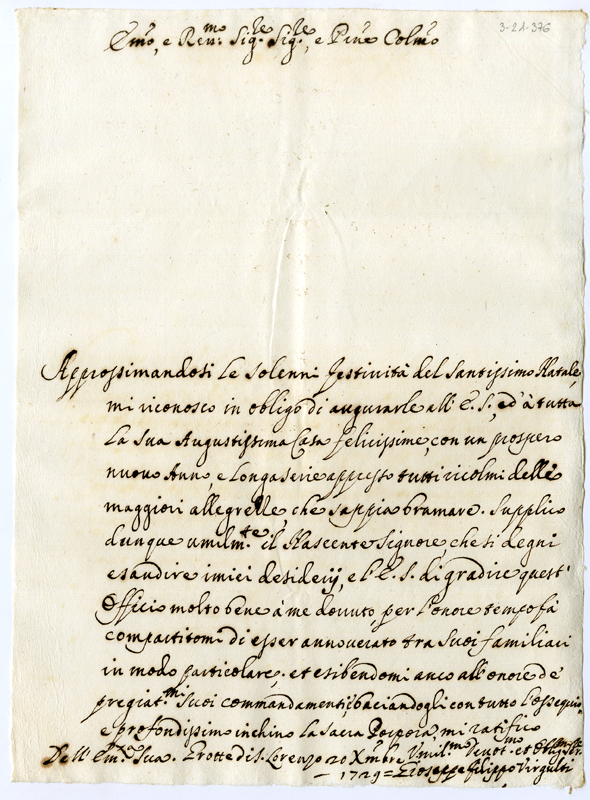 3-21-376
Emo, e Revmo. Sigre. Sigre, e Pne Colmo
Approssimandosi le solenni festività del Santissimo Natale,
mi riconosco in obligo di augurarle all' E. S., ed à tutta
la sua Augustissima Casa felicissime, con un prospero
nuovo Anno, e longa serie appresso tutti ricolmi delle
maggiori allegrelle, che sappia bramare. Supplico
dunque umilmte. il Nascente Signore, che si degni
esaudire i miei desiderij, e l'E. S. di gradire quest'
Officio molto bene à me dovuto, per l'onore tempo fà
compartitomi di esser annoverato tra suoi familiari
in modo particolare. et esibendomi anco all'onore de
pregiatmi. suoi commandamenti, baciandogli con tutto l'ossequio,
e profondissimo inchino la Sacra Porpora, mi ratifico
Dell' Emza. Sua. Grotte di S. Lorenzo 20 Xmbre Umilmo. Devotmo. et Obligmo
– 1729 = Gioseppe Filippo Virgulti